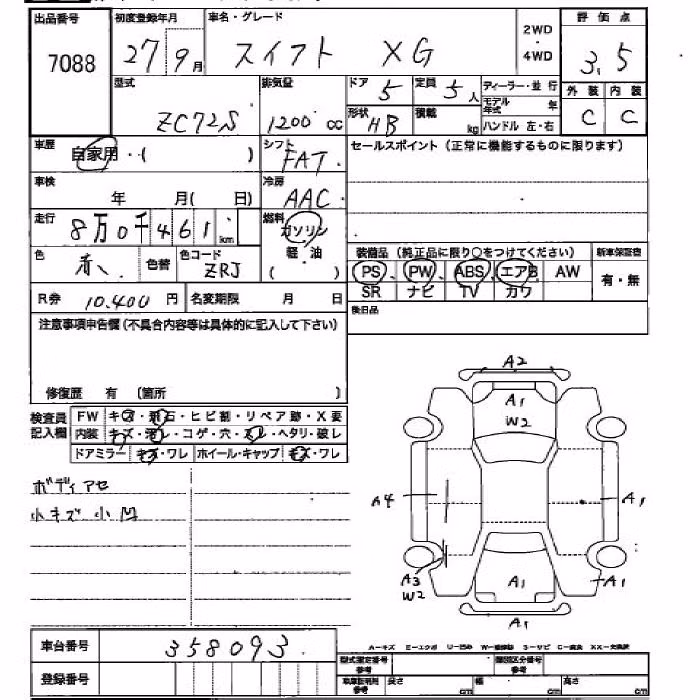 出品番号 初度登録年月 車名・グレード 2WD・4WD 評価点
7088 27/9月 スイフト XG 3.5
型式 排気量 ドア 5 定員 5人 ディーラー・並行 外装 内装
ZC72S 1200cc 形状 HB 積載 kg モデル年式 年 C C
ハンドル 左・右
車歴 自家用・( ) シフト FAT. セールスポイント(正常に機能するものに限ります)
車検 年 月( 日) 冷房 AAC
走行 8万0千461km 燃料 ガソリン
軽油
( )
色 赤、 色替 色コード ZRJ
装備品(純正品に限り○をつけてください) 新車保証書
PS PW ABS エアB AW 有・無
SR ナビ TV カワ
R券 10.400円 名変期限 月 日 後日品
注意事項申告欄(不具合内容等は具体的に記入して下さい)
修復歴 有 〔箇所 〕
検査員記入欄 FW キズ・飛石・ヒビ割・リペア跡・X要
内装 キズ・汚レ・コゲ・穴・スレ・ヘタリ・破レ
ドアミラー キズ・ワレ ホイール・キャップ キズ・ワレ
ボディアセ
小キズ小凹
A2
A1
W2
A4
A1
A3
W2
A1
A1
A1
車台番号 358093
登録番号
A-キズ E-エクボ U-凹み W-補修跡 S-サビ C-腐食 XX-交換済
型式指定番号 参考 類別区分番号 参考
長さ cm 幅 cm 高さ cm